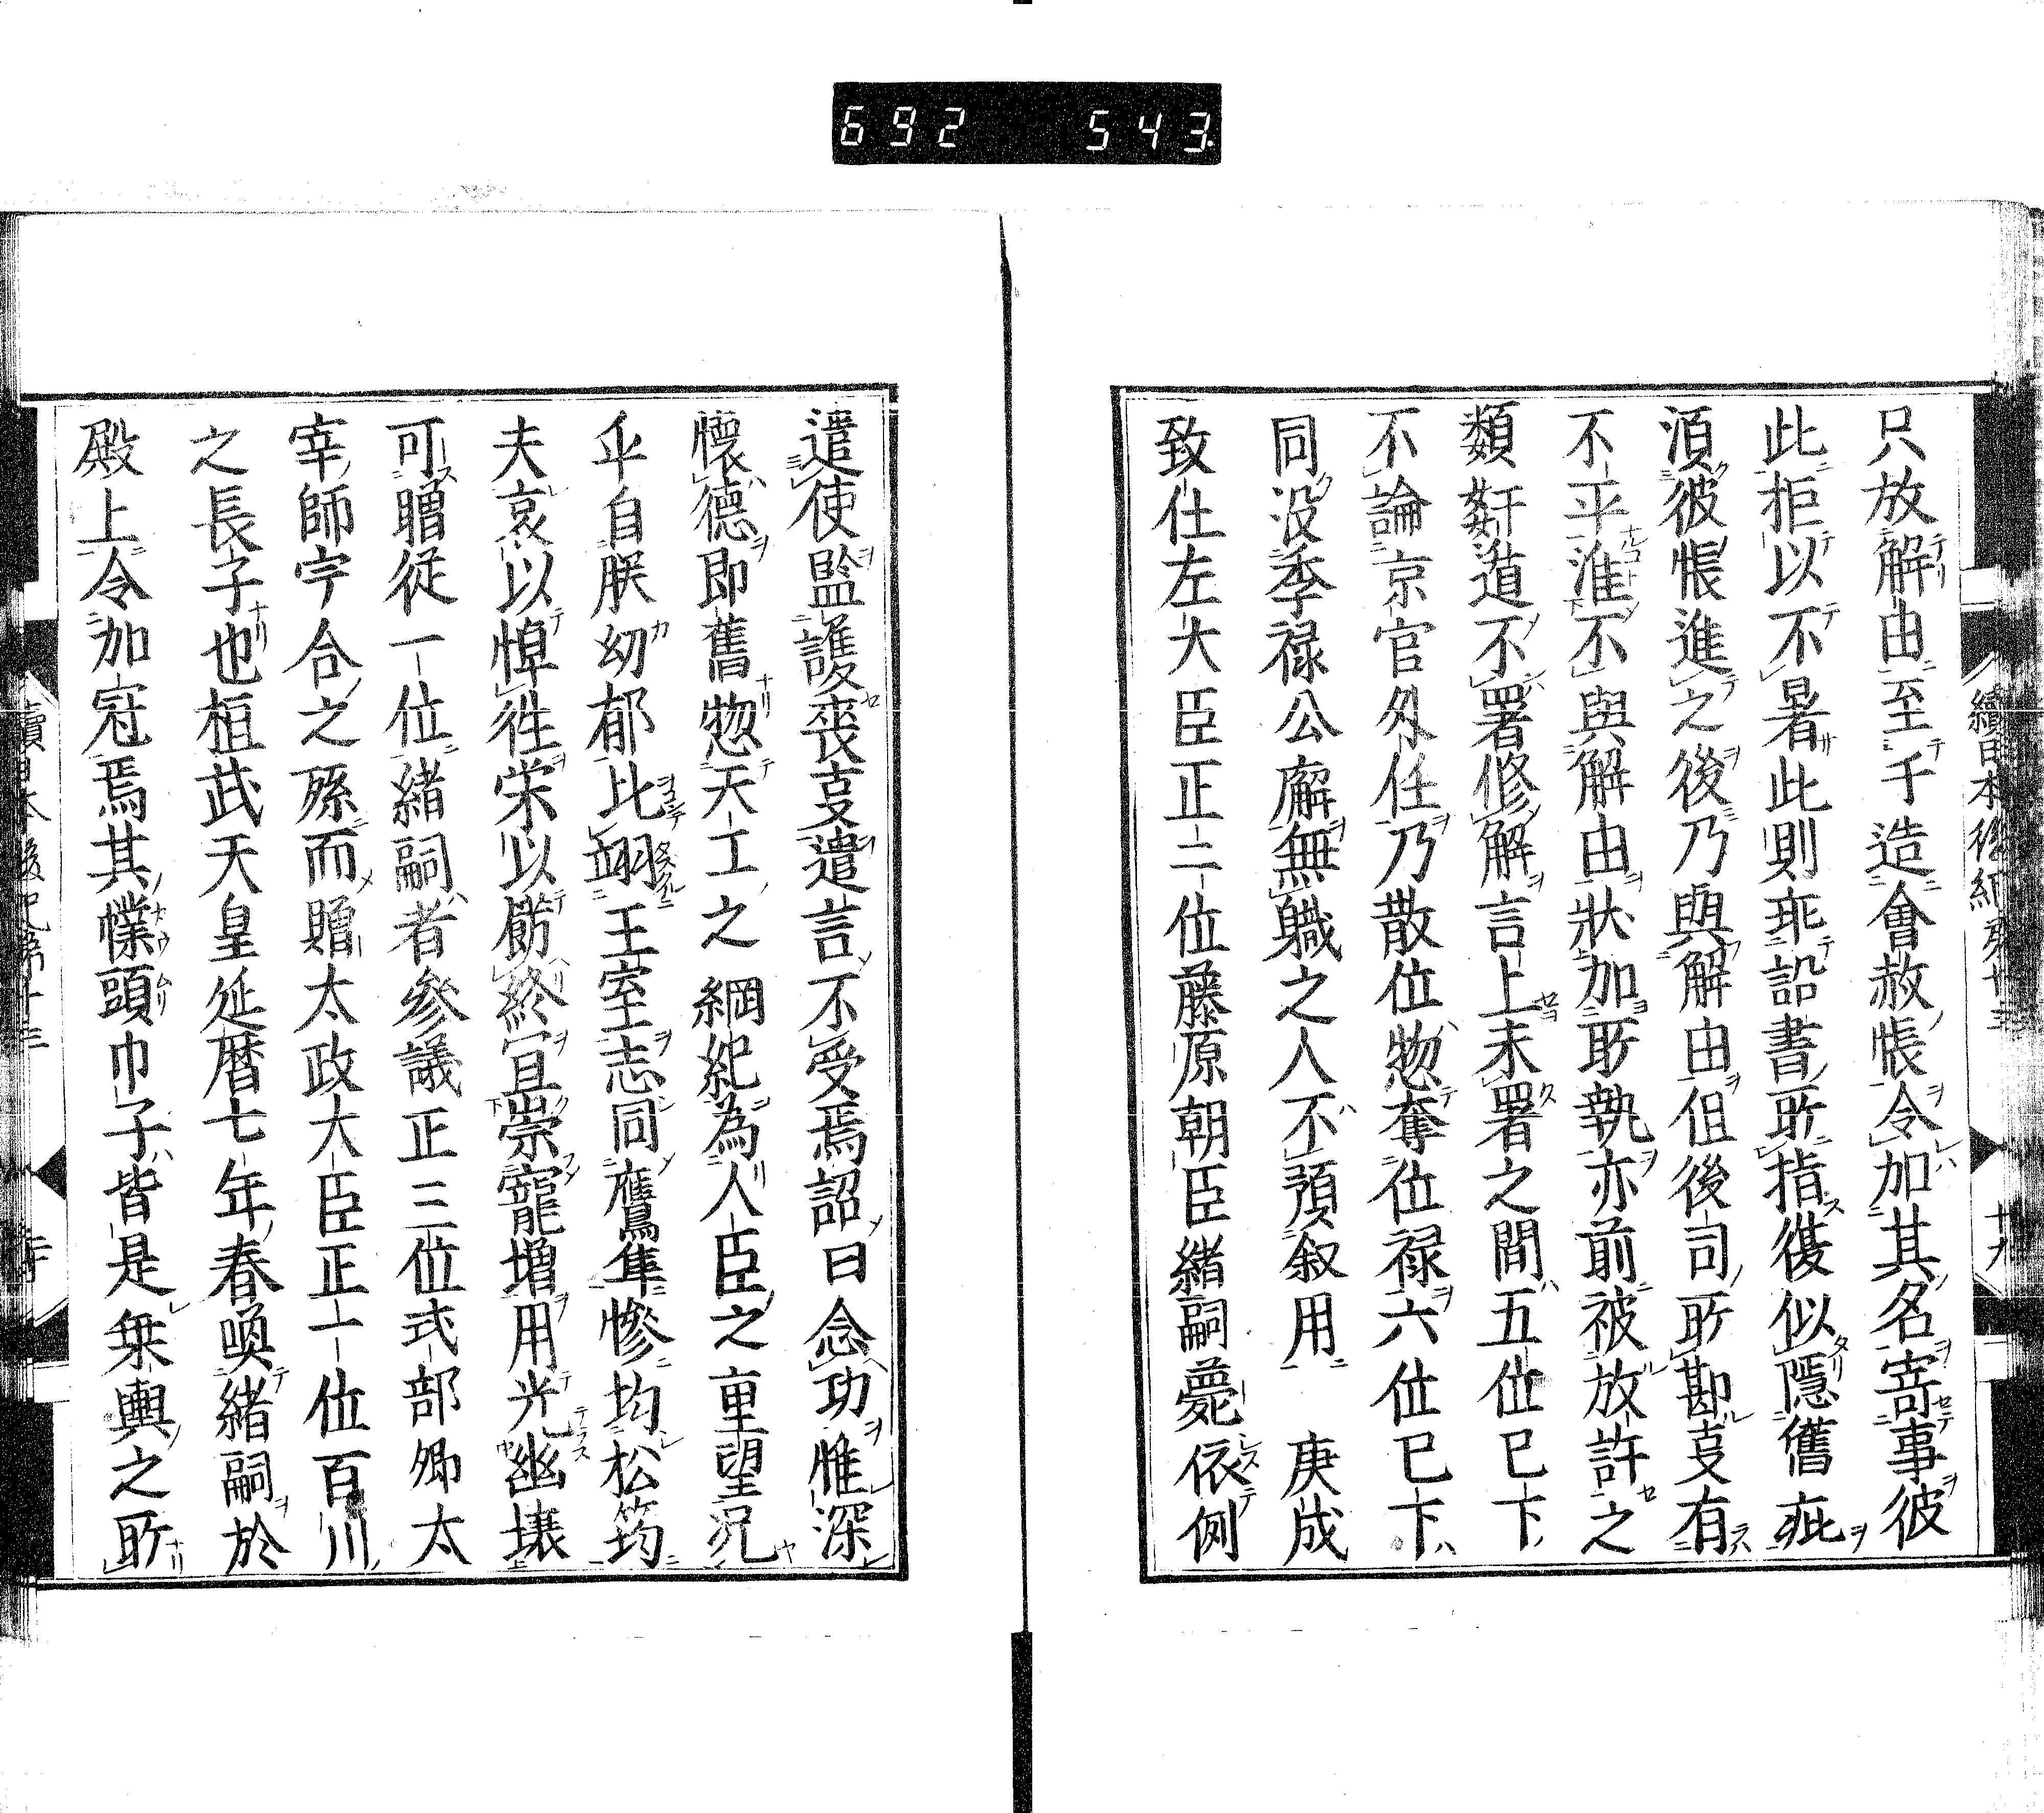 692 543
續日本後紀 十九
只放解由至千造會赦帳令加其名寄事彼
此拒以不署此則乖詔書所指復似隱舊疵
須彼帳進之後乃與解由但後司所勘𠭥有
不平淮不與解由狀加所執亦前被放許之
類姧逌不署修解言上未署之間五位已下
不論京官外任乃散位惣奪位禄六位已下
同没季禄公廨無職之人不預叙用 庚戌
致仕左大臣正二位藤原朝臣緒嗣薨依例
遣使監護喪𠭥遣言不受焉詔曰念功惟深
懷德即舊惣天工之綱紀為人臣之重望况
乎自朕幼郁比翊王室志同鷹隼慘均松筠
夫哀以悼徃栄以餝終宜崇寵增用光幽壤
可贈從一位緒嗣者參議正三位式部卿太
宰師宇合之孫而贈太政大臣正一位百川
之長子也桓武天皇延暦七年春喚緒嗣於
殿上令加冠焉其幞頭巾子皆是乗輿之所